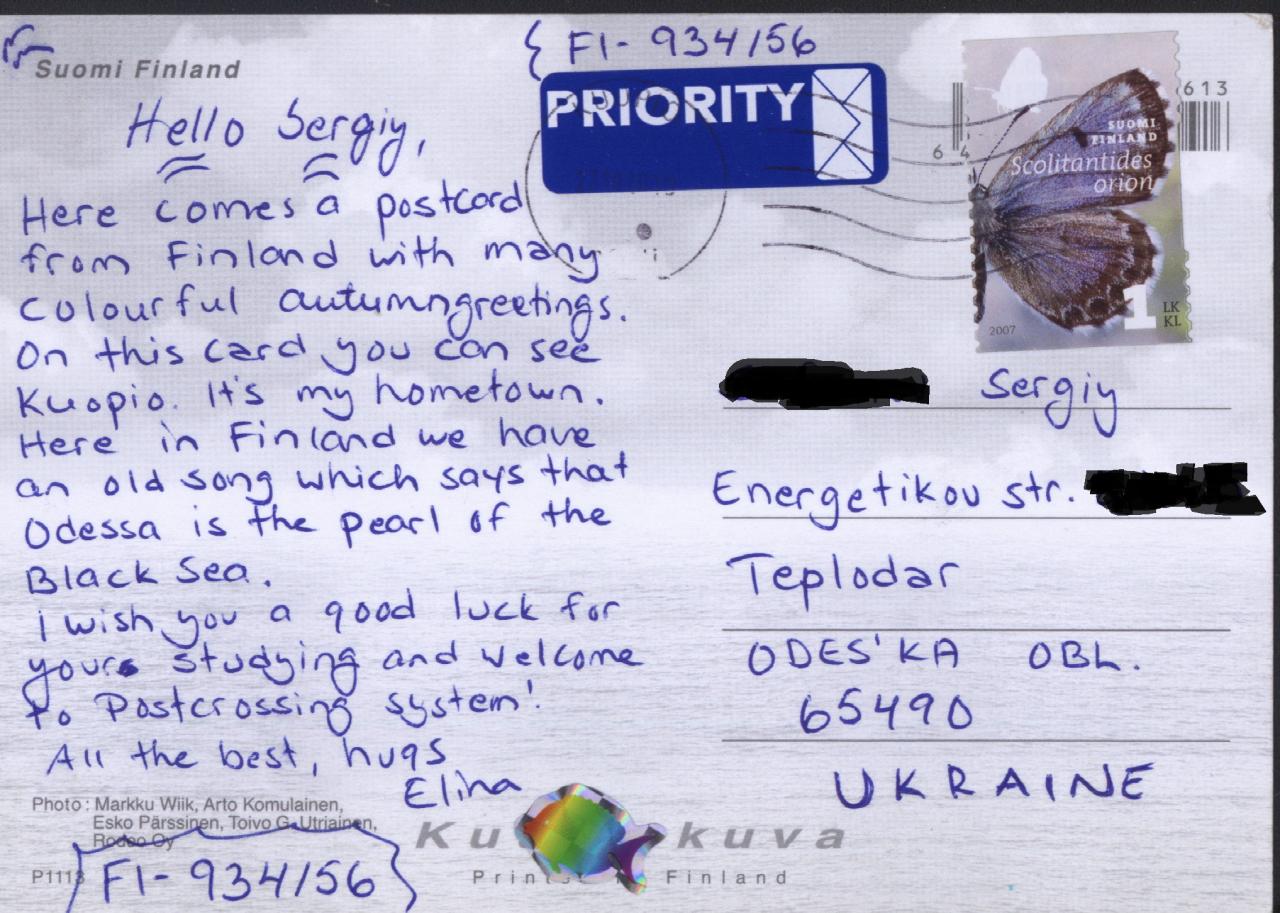 FI- 934156
Suomi Finland
PRIORITY
613
64
SUOMI
FINLAND
Scolitantides
orion
1
LK
KL
2007
Hello Sergiy,
Here comes a postcard
from Finland with many
colourful autumngreetings.
On this card you can see
Kuopio. It's my hometown.
Here in Finland we have
an old song which says that
Odessa is the pearl of the
Black Sea.
I wish you a good luck for
your studying and welcome
to Postcrossing system!
All the best, hugs
Elina
Sergiy
Energetikov str.
Teplodar
ODES'KA OBL.
65490
UKRAINE
Photo: Markku Wiik, Arto Komulainen,
Esko Pärssinen, Toivo G. Utriainen,
Rodeo Oy
P1113
FI- 934156
kuva
Finland